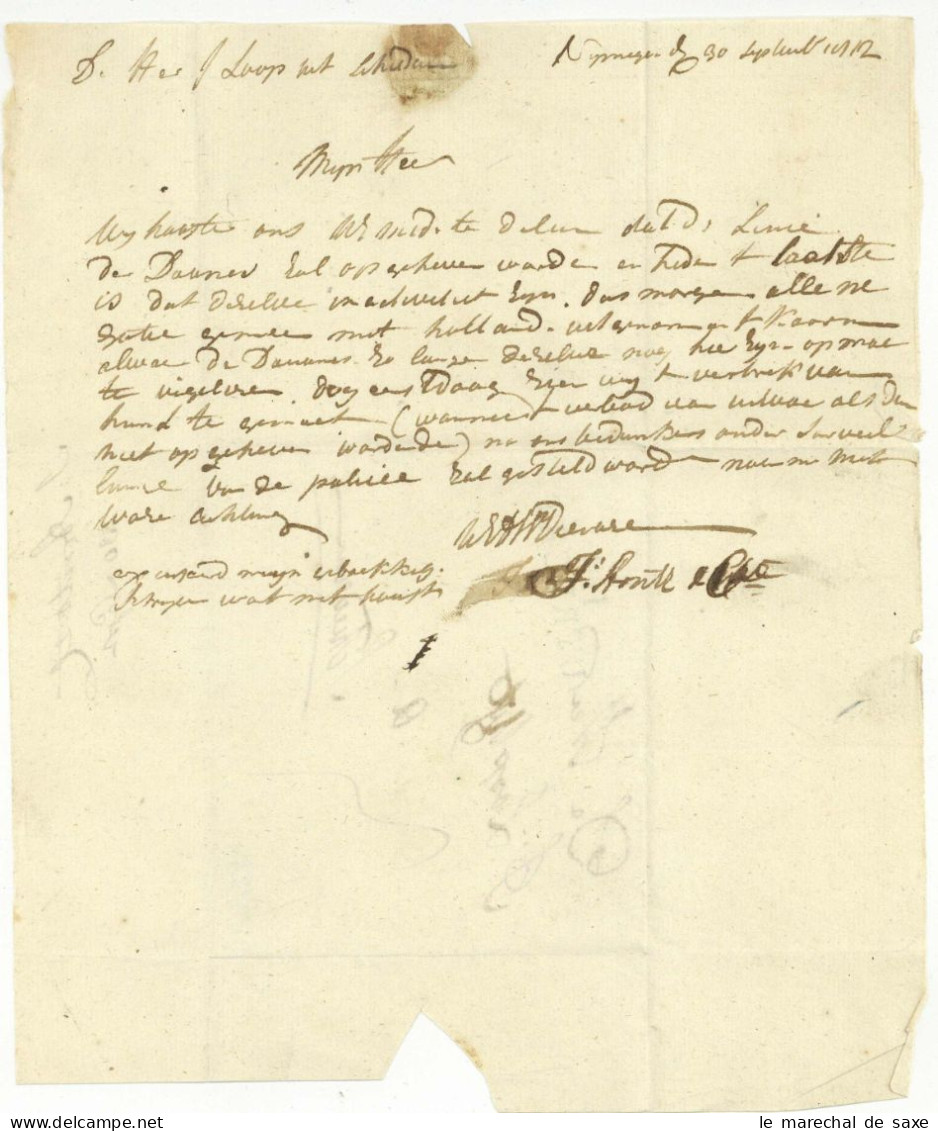 D. Heer J Loopuyt Schiedam
Nijmegen den 30 September 1812
Mijn Heer
Wij haaste ons UE mede te delen dat de Linie
der Douanes zal opgeheven worden en heden t laatste
is dat dezelve in activiteit zijn. dus morgen alle
met Holland. uitgenomen t Koorn
alwaar de Douanes zo lange dezelve nog hier zijn op moe
te vigileren. dog eerstdaags zijn wij t vertrek van
hund te gemoet (wanneer t verbod van uitvoer als dan
niet opgeheven worden de) na ons bedunken onder surveil
lance van de policie zal gesteld worden noeme met
ware achting
UEDWDienare
excuseerd mijn
schrijven wat met haast
& Comp
le marechal de saxe